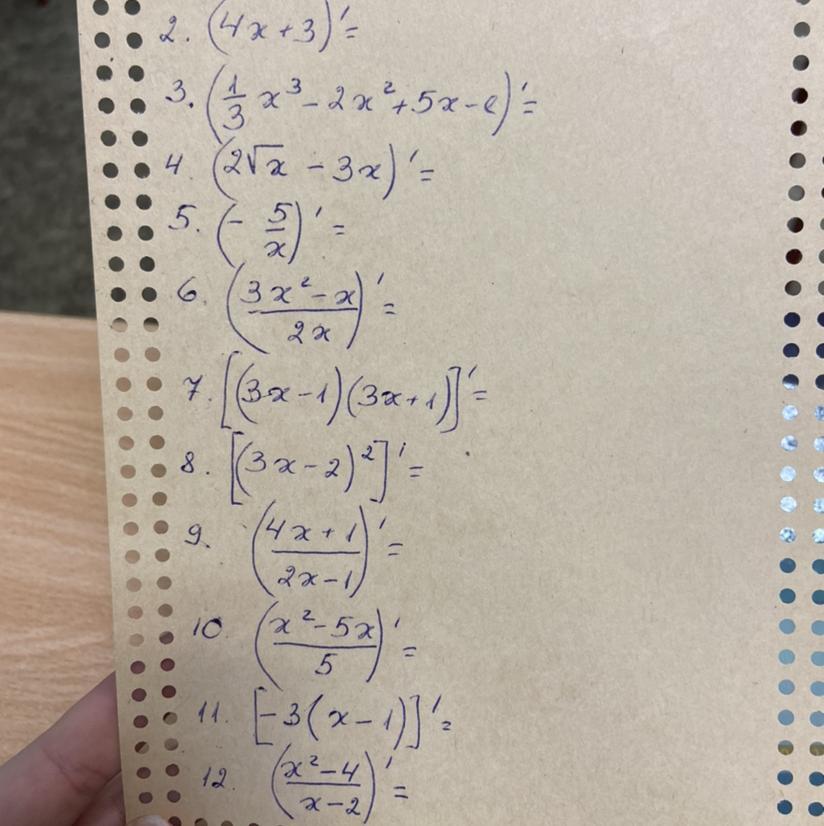 2. (4x+3)'=
3. (1/3 x³-2x²+5x-e)'=
4. (2√x - 3x)'=
5. (- 5/x)'=
6. ((3x²-x)/2x)'=
7. [(3x-1)(3x+1)]'=
8. [(3x-2)²]'=
9. ((4x+1)/(2x-1))'=
10. ((x²-5x)/5)'=
11. [-3(x-1)]'=
12. ((x²-4)/(x-2))'=